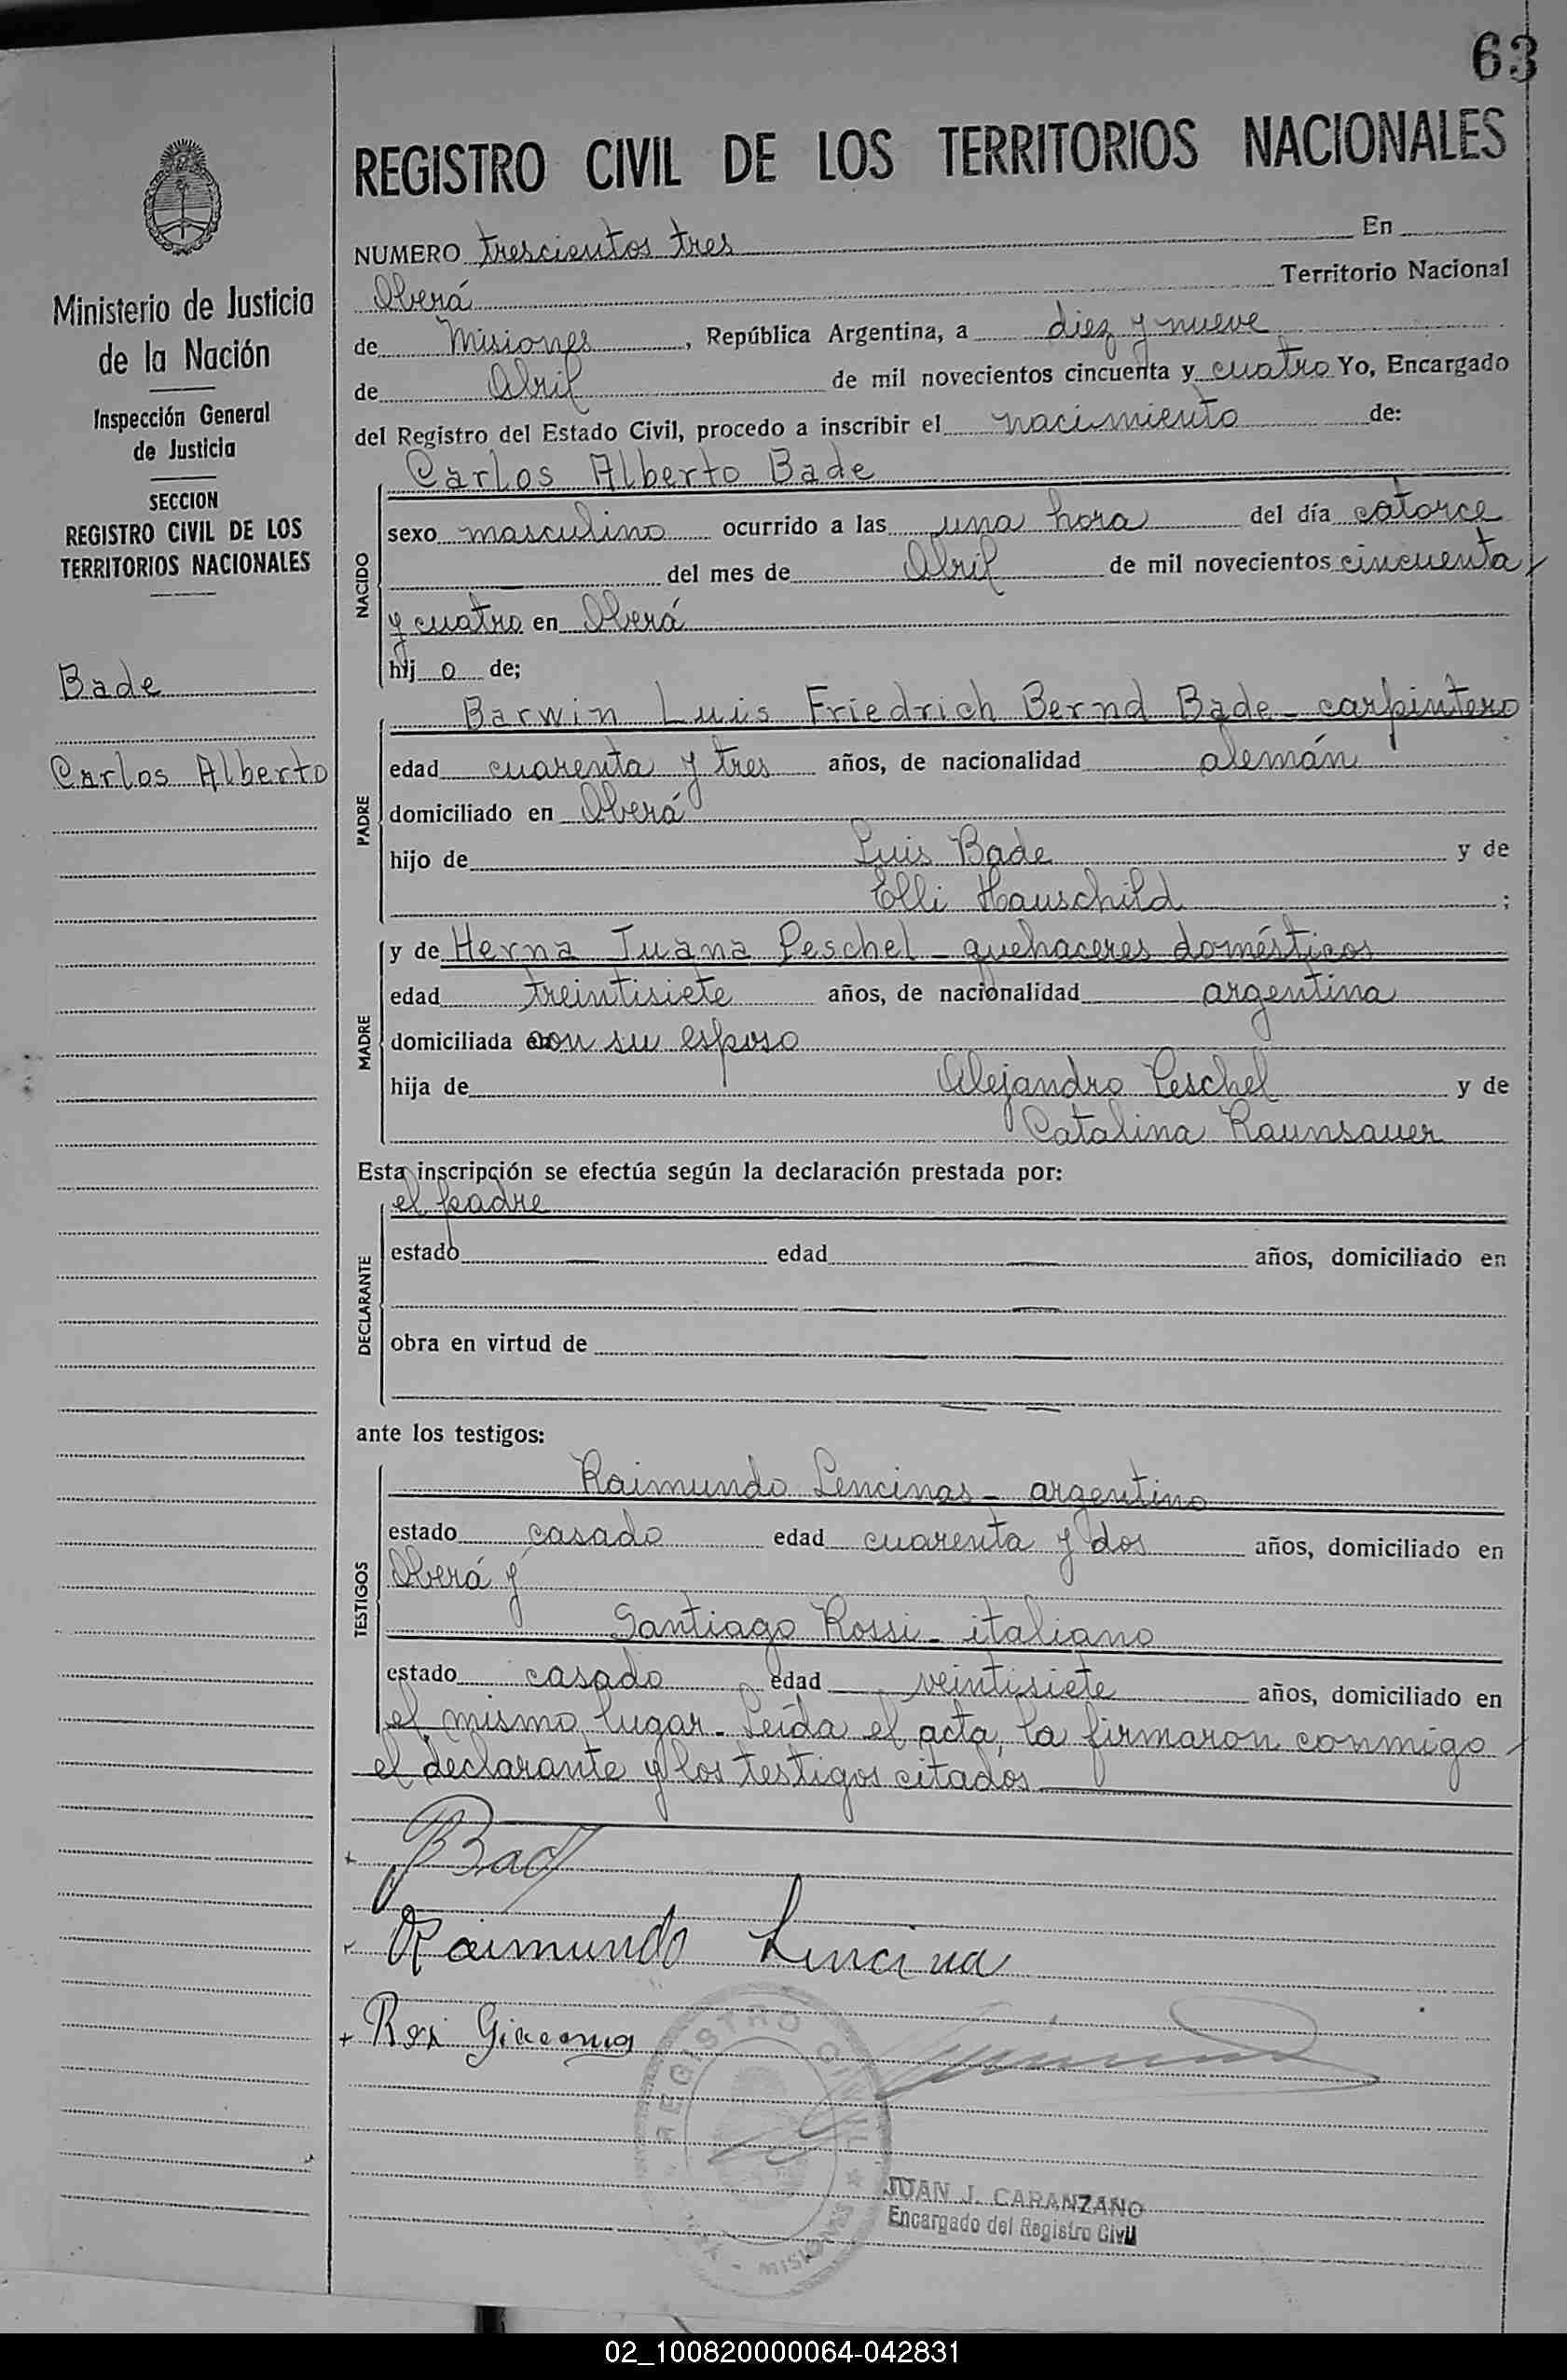 63
REGISTRO CIVIL DE LOS TERRITORIOS NACIONALES
Ministerio de Justicia
de la Nación
Inspección General
de Justicia
SECCION
REGISTRO CIVIL DE LOS
TERRITORIOS NACIONALES
Bade
Carlos Alberto
NUMERO trescientos tres En
Oberá Territorio Nacional
de Misiones, República Argentina, a diez y nueve
de Abril de mil novecientos cincuenta y cuatro Yo, Encargado
del Registro del Estado Civil, procedo a inscribir el nacimiento de:
Carlos Alberto Bade
NACIDO
sexo masculino ocurrido a las una hora del día catorce
del mes de Abril de mil novecientos cincuenta
y cuatro en Oberá
hij o de;
Barwin Luis Friedrich Bernd Bade - carpintero
PADRE
edad cuarenta y tres años, de nacionalidad alemán
domiciliado en Oberá
hijo de Luis Bade y de
Elli Hauschild ;
y de Herna Juana Peschel - quehaceres domésticos
MADRE
edad treintisiete años, de nacionalidad argentina
domiciliada con su esposo
hija de Alejandro Peschel y de
Catalina Raunsauer
Esta inscripción se efectúa según la declaración prestada por:
el padre
DECLARANTE
estado edad años, domiciliado en
obra en virtud de
ante los testigos:
Raimundo Lencinas - argentino
TESTIGOS
estado casado edad cuarenta y dos años, domiciliado en
Oberá y
Santiago Rossi - italiano
estado casado edad veintisiete años, domiciliado en
el mismo lugar - Leída el acta, la firmaron conmigo
el declarante y los testigos citados
Raimundo Lencina
Giacomo
REGISTRO CIVIL
MISIONES
JUAN J. CARANZANO
Encargado del Registro Civil
02_100820000064-042831